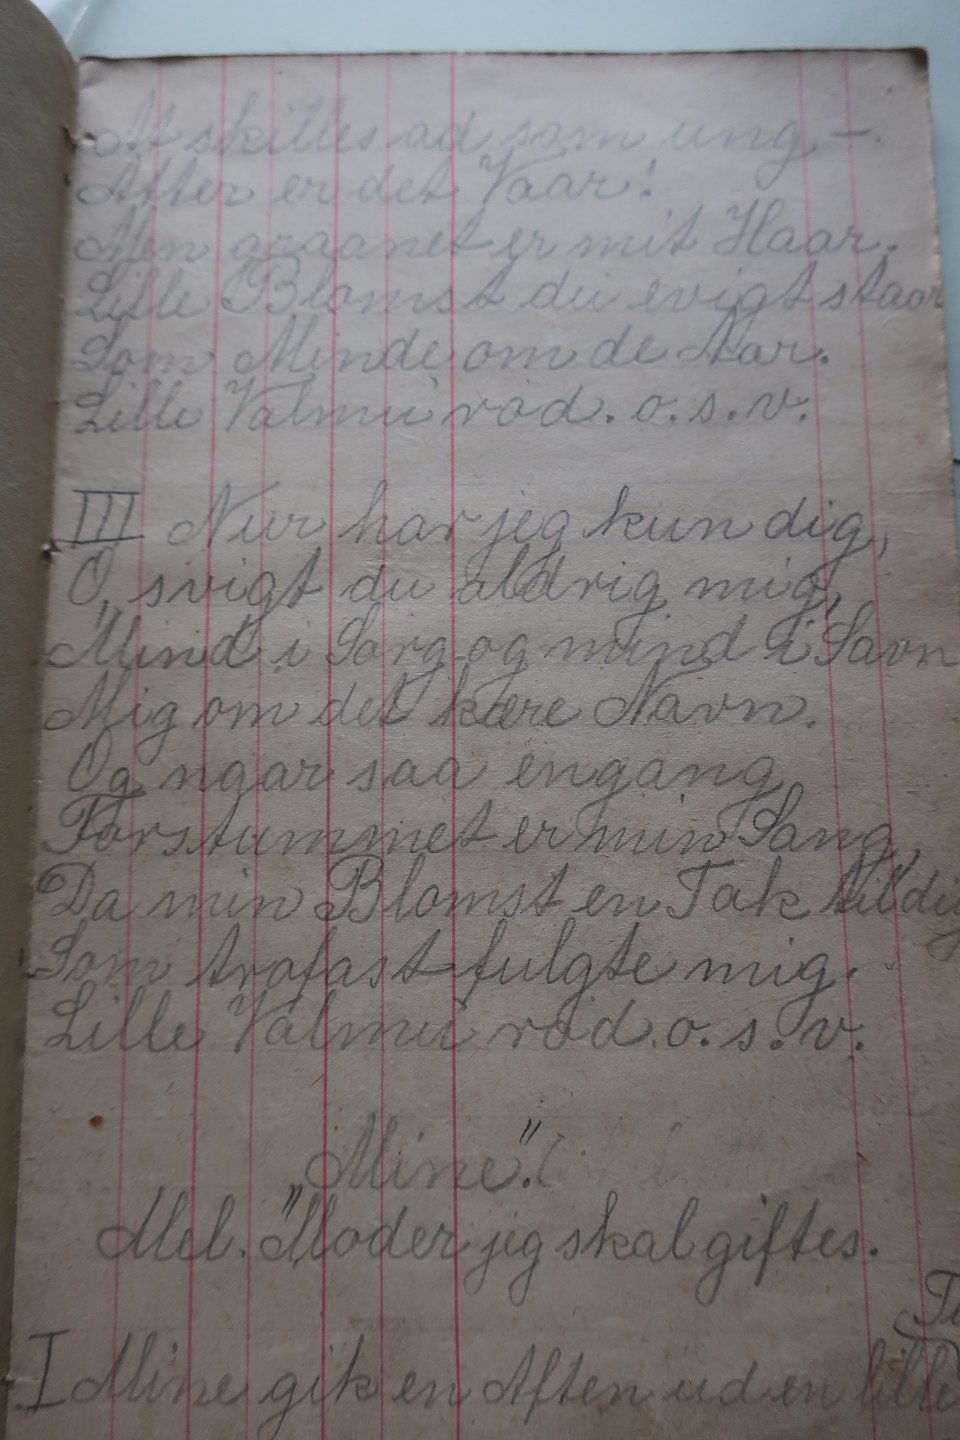 At skilles ad som ung –.
Atter er det Vaar!
Men graanet er mit Haar.
Lille Blomst du evigt staar
Som Minde om de Aar.
Lille Valmu rød. o. s. v.
III Nur har jeg kun dig,
O, svigt du aldrig mig,
Mind i Sorg og mind i Savn
Mig om det kære Navn.
Og naar saa engang
Forstummet er min Sang,
Da min Blomst en Tak til dig
Som trofast fulgte mig.
Lille Valmu rød. o. s. v.
"Mine".
Mel. "Moder jeg skal giftes.
I Mine gik en Aften ud en lille